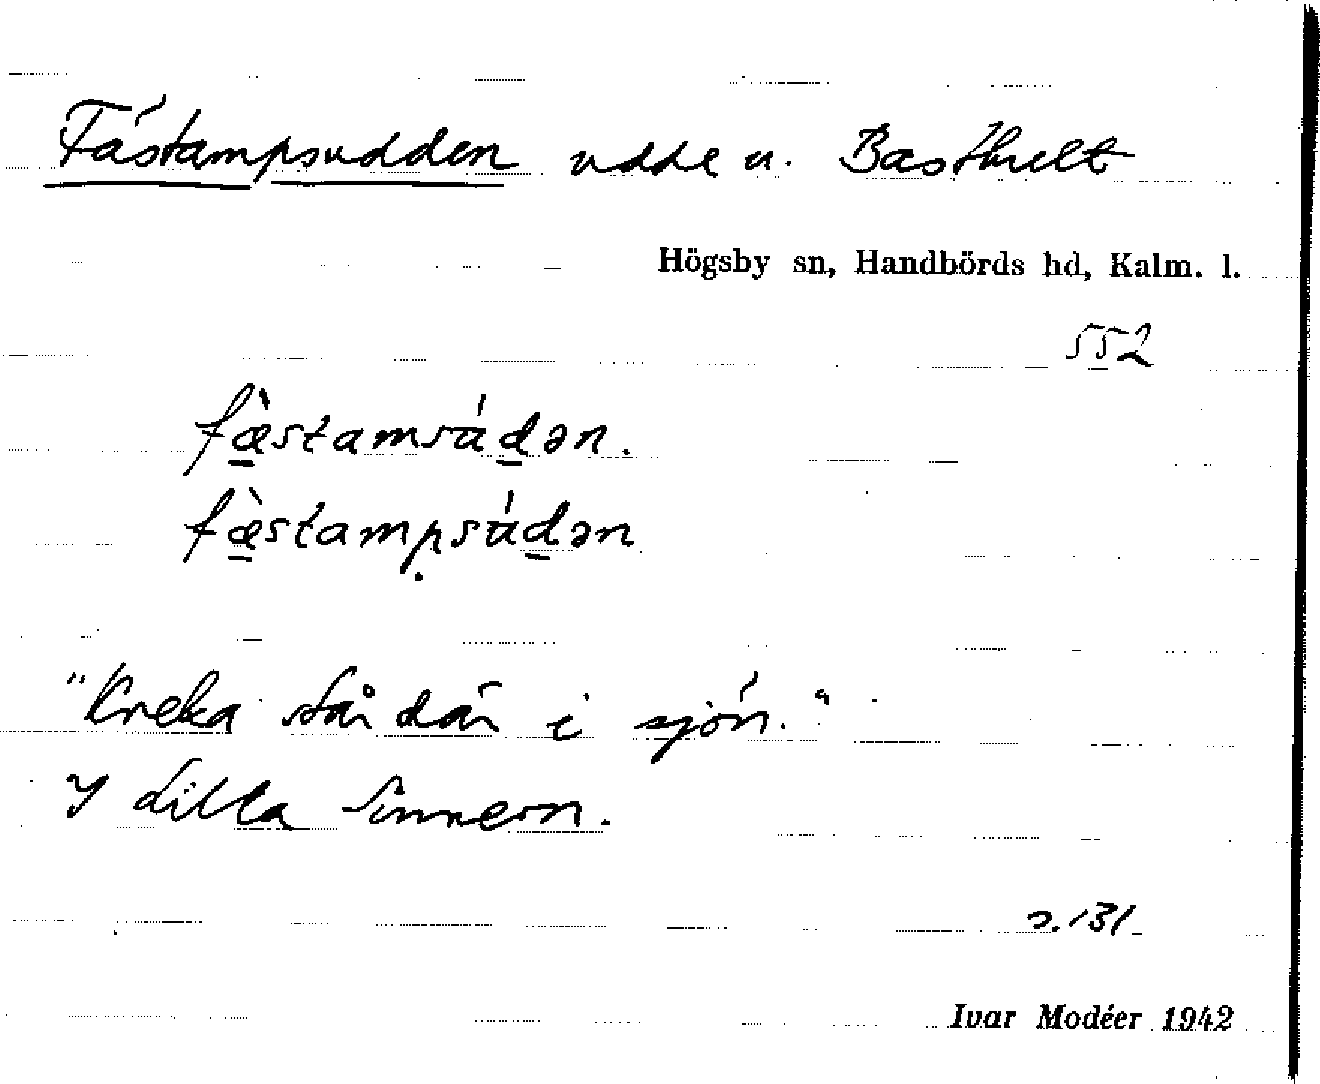 Fästampsudden udde u. Basthult
Högsby sn, Handbörds hd, Kalm. l.
552
fæ̀stamsádən.
fæ̀stampsádən
"Kreka står där i sjön."
I Lilla Sinnern.
s. 131
Ivar Modéer 1942